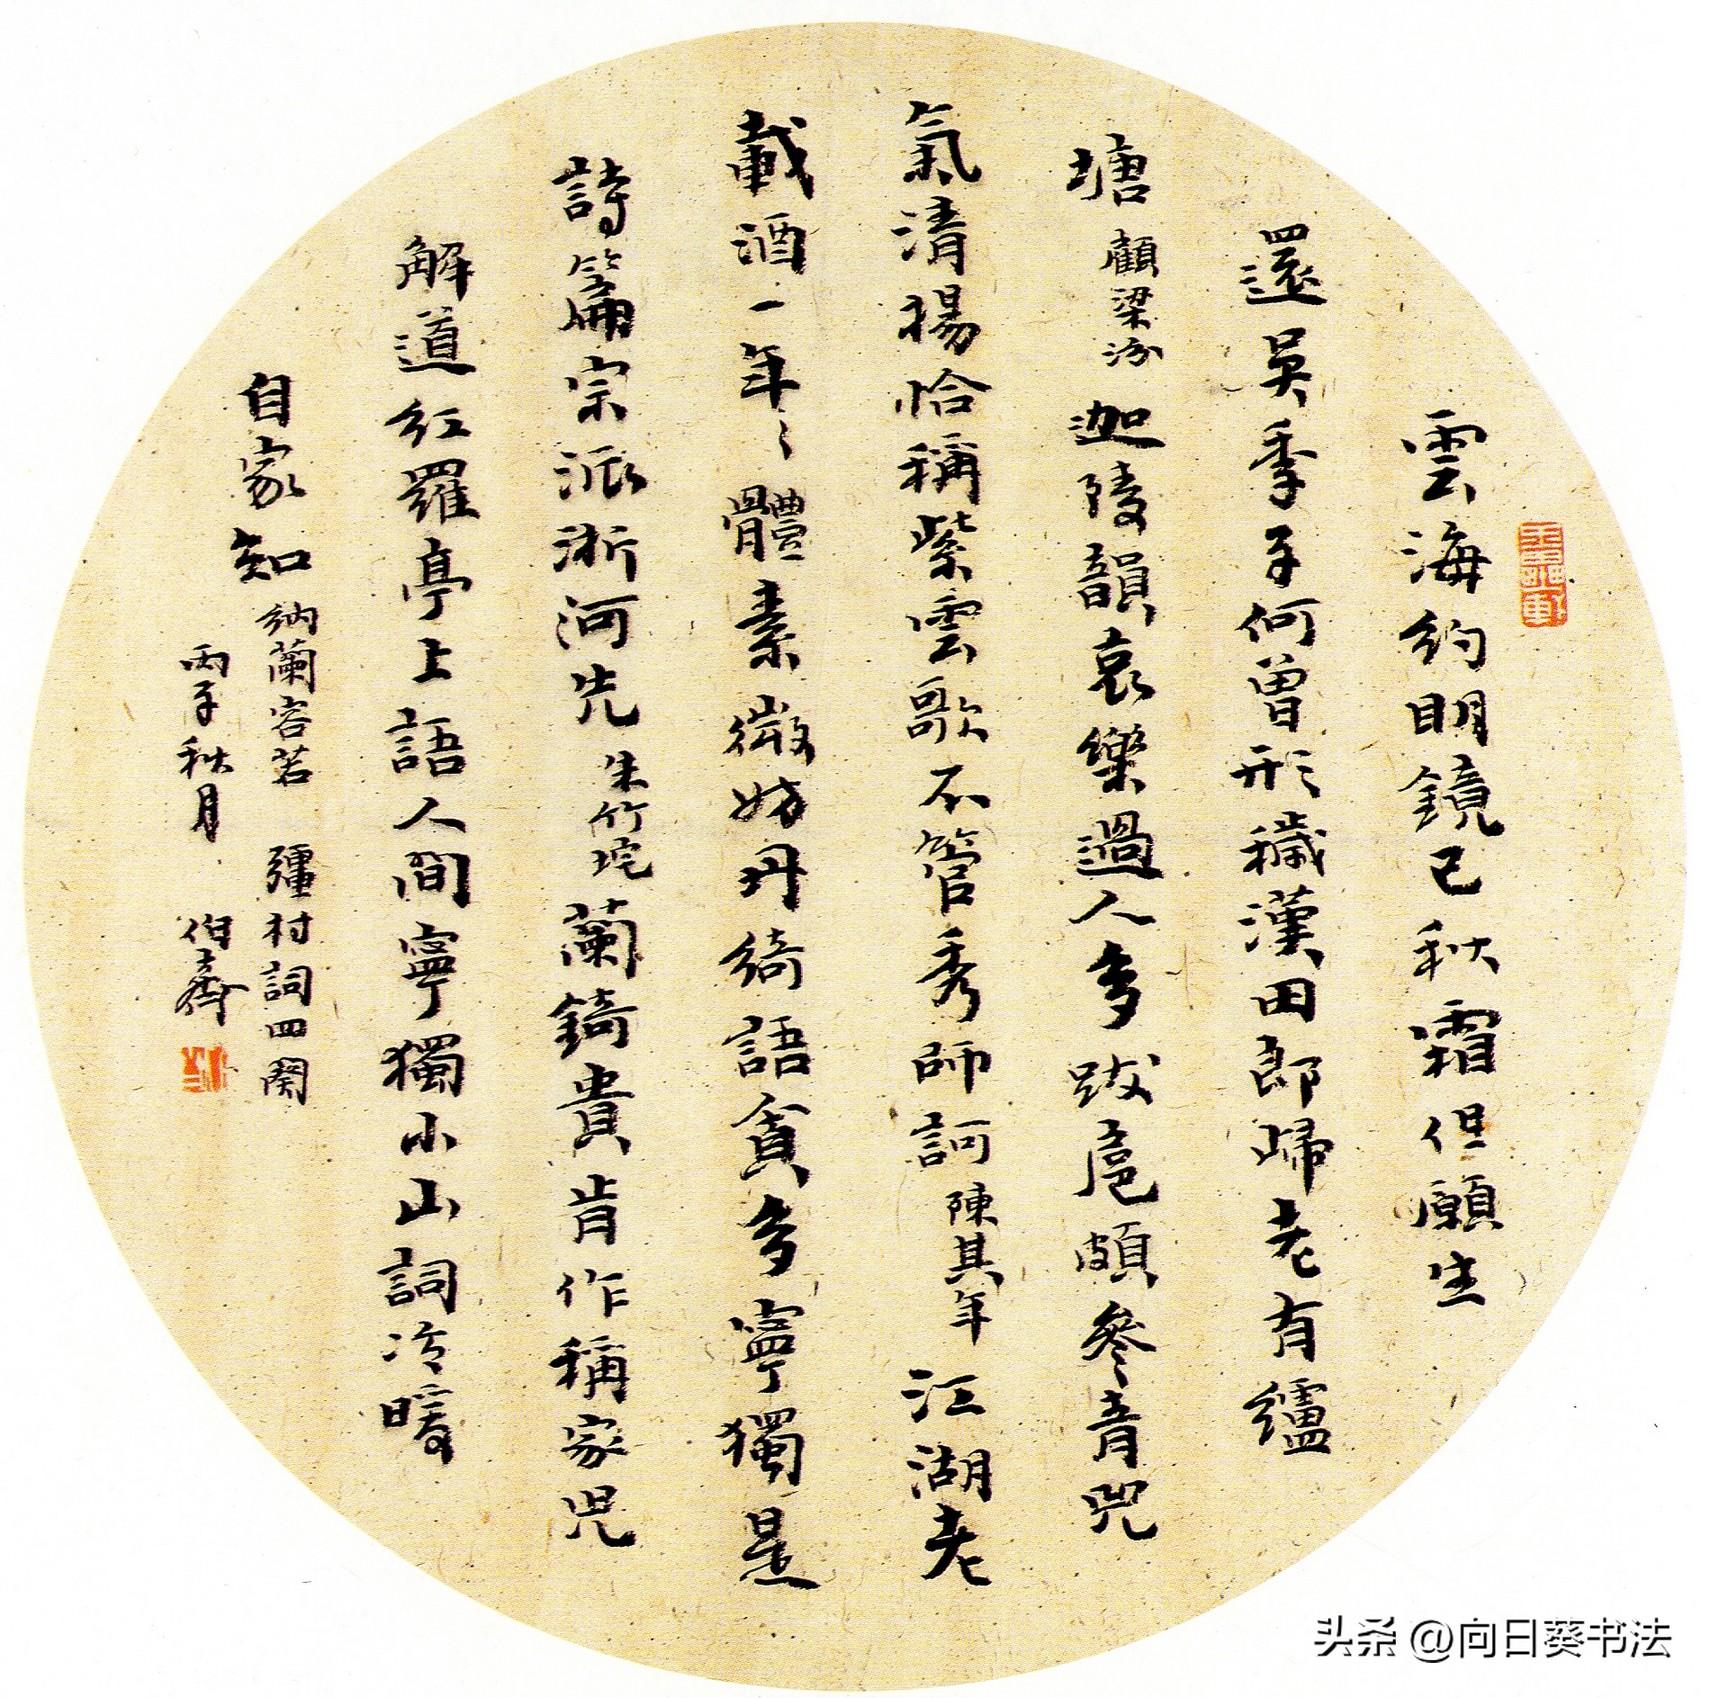 雲海約明鏡已秋霜但願生
還吳季子何曾形穢漢田郎歸老有纑
塘 顧梁汾 迦陵韻哀樂過人多跋扈頗參青兕
氣清揚恰稱紫雲歌不管秀師訶 陳其年 江湖老
載酒一年〻體素微妨丹綺語貪多寧獨是
詩篇宗派浙河先 朱竹垞 蘭錡貴肯作稱家兒
解道紅羅亭上語人間寧獨小山詞冷暖
自家知 納蘭容若 彊村詞四闋
丙子秋月 伯齋
头条 @向日葵书法